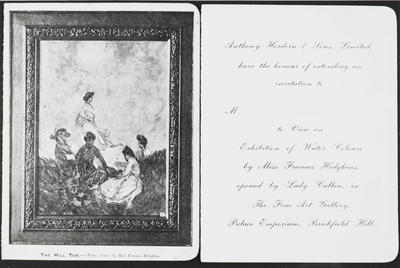 THE HILL TOP.—Water Colour by Miss Frances Hodgkins
Anthony Hordern & Sons, Limited,
have the honour of extending an
invitation to
M
to View an
Exhibition of Water Colours
by Miss Frances Hodgkins,
opened by Lady Cullen, in
The Fine Art Gallery,
Palace Emporium, Brickfield Hill.